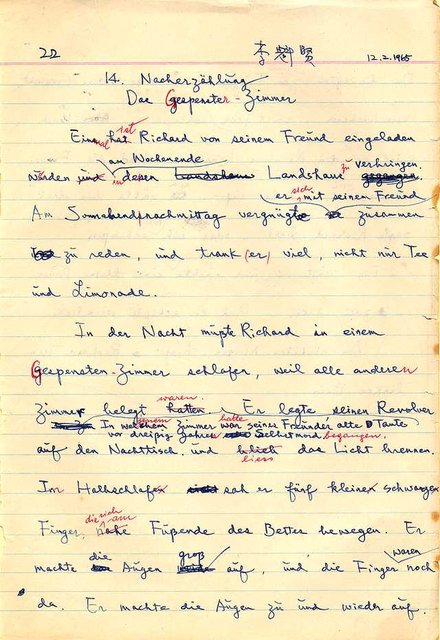 22 李 賢 12.2.1965
14. Nacherzählung
Das Gespenster-Zimmer
Einmal hat ist Richard von seinem Freund eingeladen
am Wochenende
worden und in dessen Landshaus Landshaus zu verbringen gegangen.
er sich mit seinem Freund
Am Sonnabendnachmittag vergnügte zusammen
zu reden, und trank (er) viel, nicht nur Tee
und Limonade.
In der Nacht mußte Richard in einem
Gespensten-Zimmer schlafen, weil alle anderen
Zimmer belegt hatten waren. Er legte seinen Revolver
In welchem jenem Zimmer war hatte seiner Freundes alte Tante
vor dreißig Jahren Selbstmord begangen.
auf den Nachttisch, und blieb liess das Licht brennen.
Im Halbschlafe sah er fünf kleine schwarze
Finger, die sich am nahe Fußende des Bettes bewegen. Er
machte die Augen groß auf, und die Finger waren noch
da. Er machte die Augen zu und wieder auf.